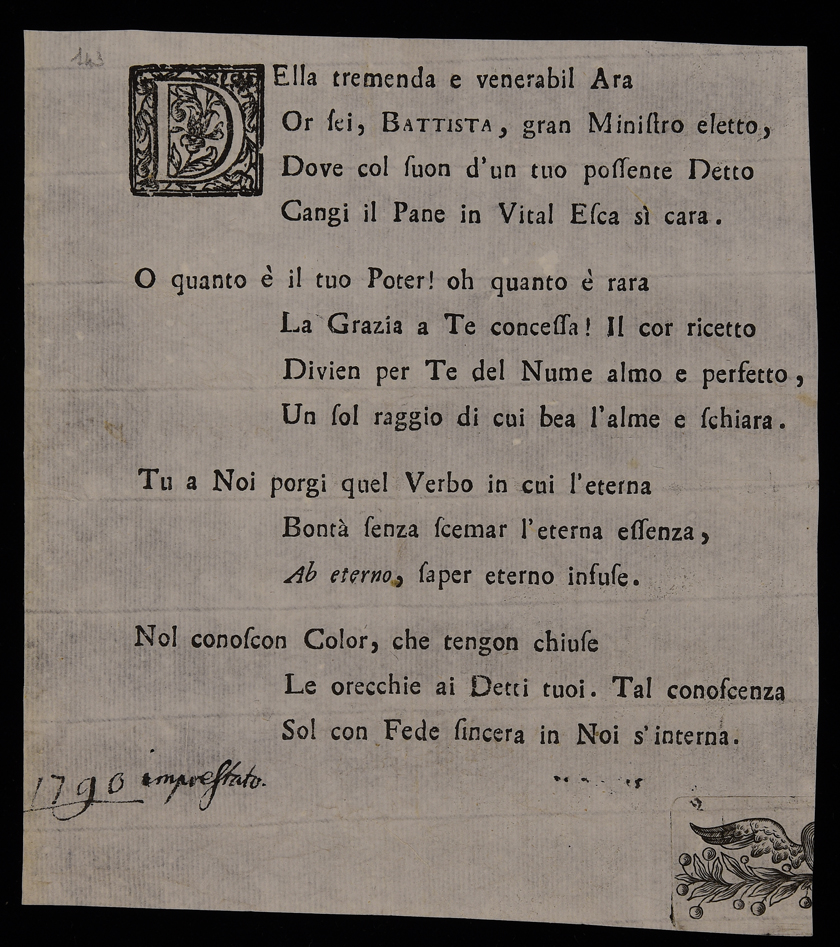 143
DElla tremenda e venerabil Ara
Or ſei, BATTISTA, gran Miniſtro eletto,
Dove col ſuon d'un tuo poſſente Detto
Cangi il Pane in Vital Eſca sì cara.
O quanto è il tuo Poter! oh quanto è rara
La Grazia a Te conceſſa! Il cor ricetto
Divien per Te del Nume almo e perfetto,
Un ſol raggio di cui bea l'alme e ſchiara.
Tu a Noi porgi quel Verbo in cui l'eterna
Bontà ſenza ſcemar l'eterna eſſenza,
Ab eterno, ſaper eterno infuſe.
Nol conoſcon Color, che tengon chiuſe
Le orecchie ai Detti tuoi. Tal conoſcenza
Sol con Fede ſincera in Noi s'interna.
1790 impreſtato.